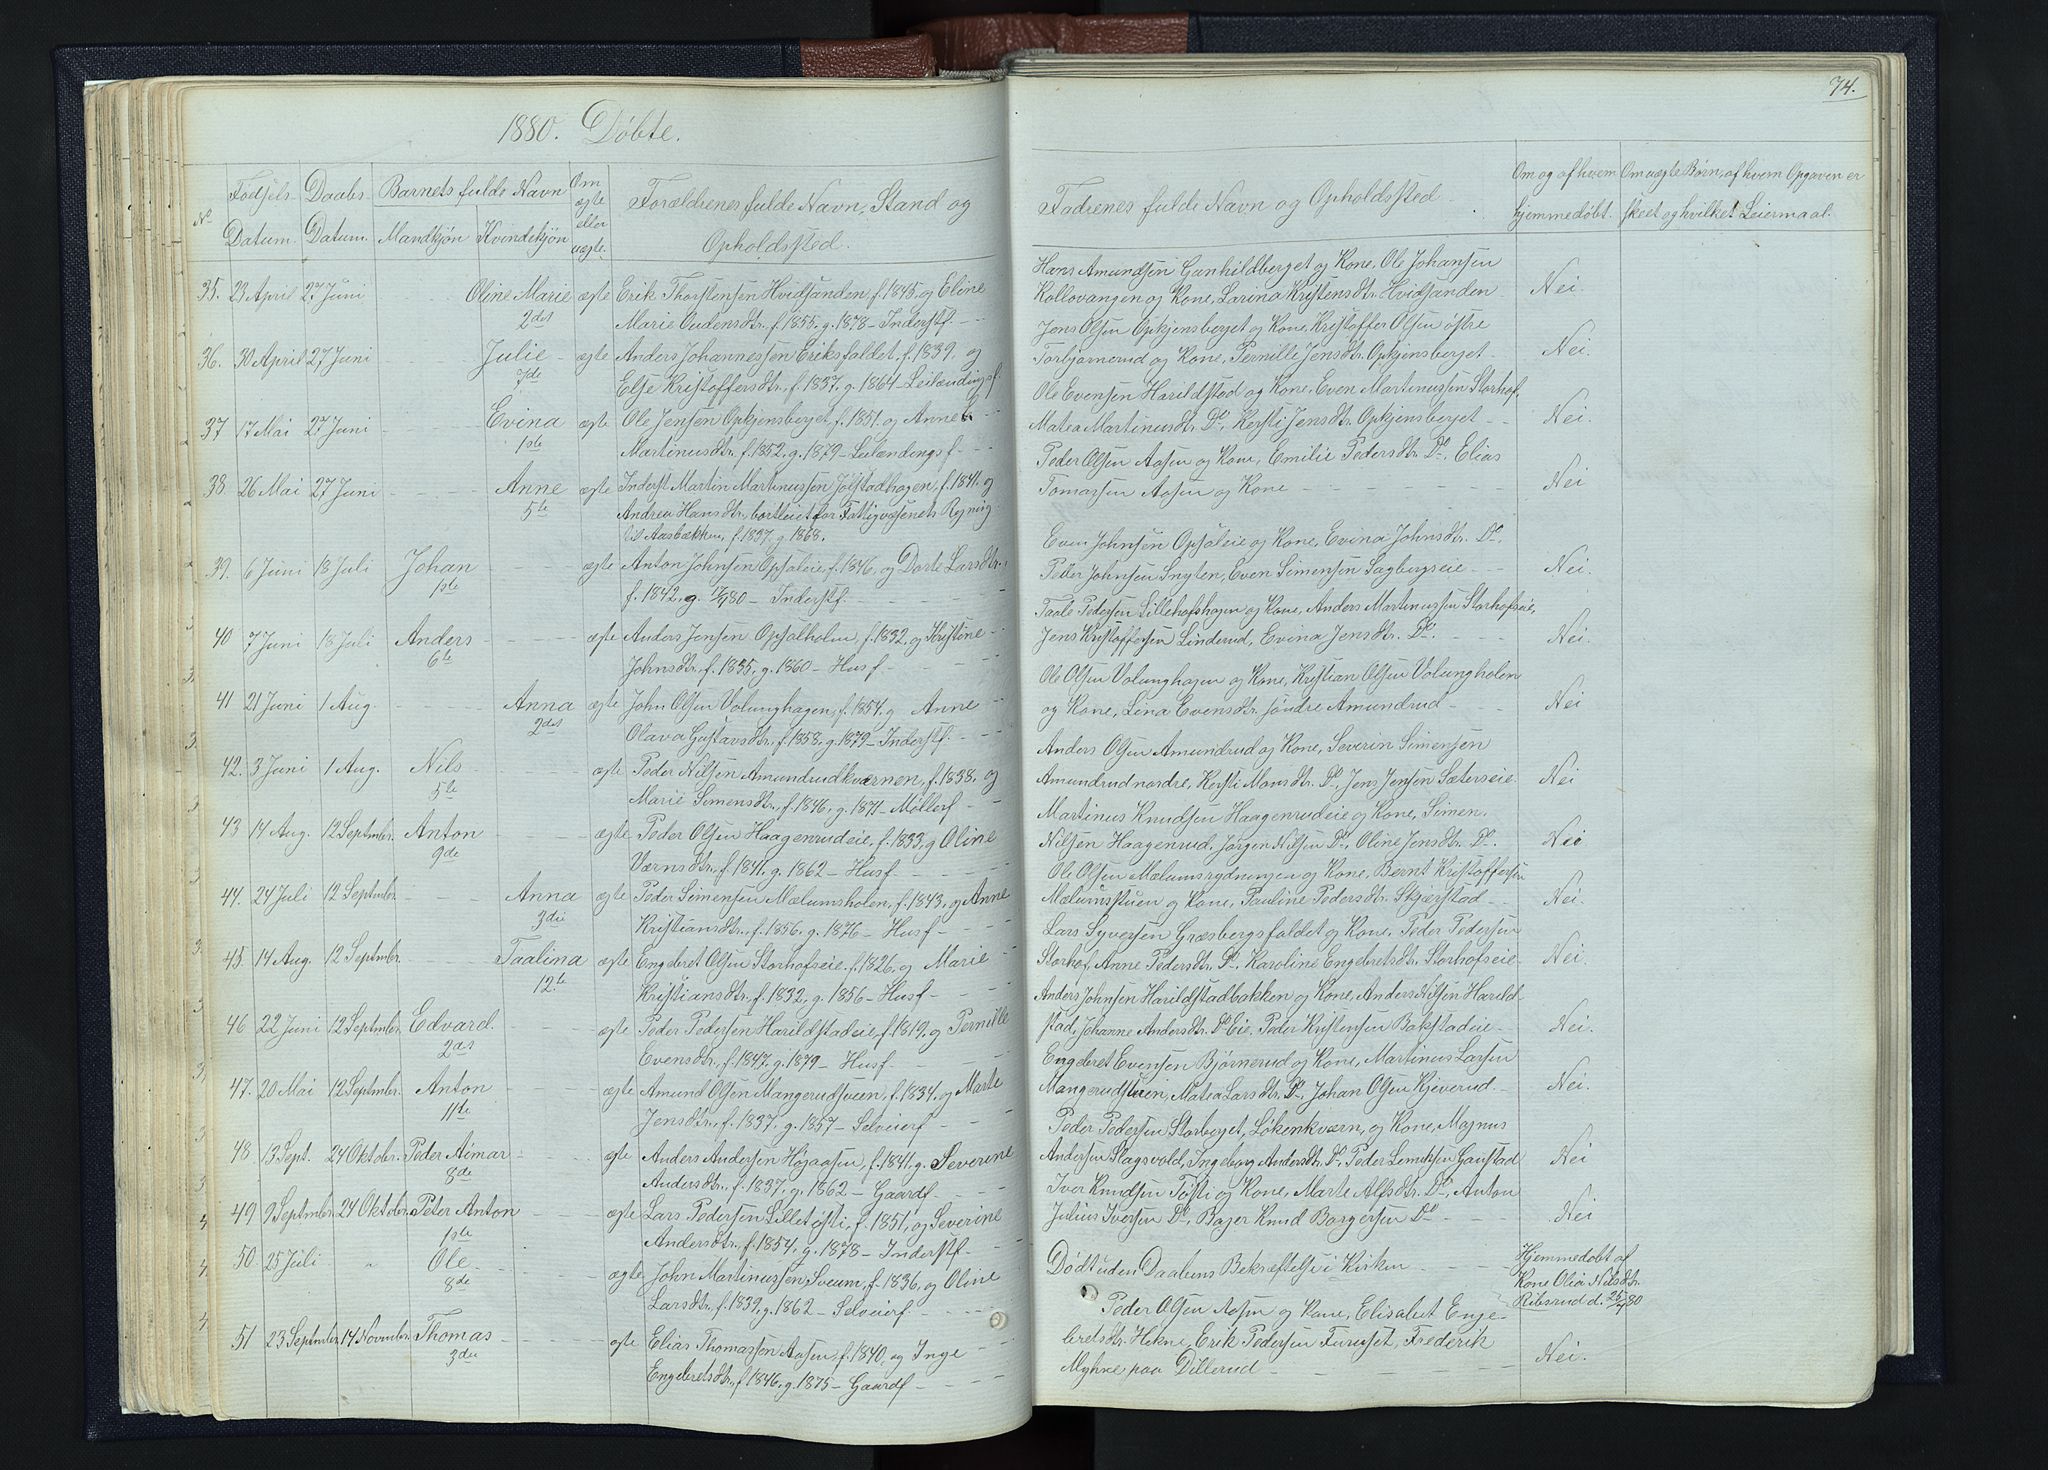 1880. Døbte.
74.
No
Fødsels-
Datum.
Daabs-
Datum.
Barnets fulde Navn
Mandkjøn
Kvindekjøn
Om
ægte
eller
uægte.
Forældrenes fulde Navn, Stand og
Opholdssted.
Fadrenes fulde Navn og Opholdssted
Om og af hvem
hjemmedøbt.
Om uægte Børn, af hvem Opgaven er
skeet og hvilket Leiermaal.
35. 23 April 27 Juni Oline Marie ægte Erik Thorstensen Hvidsanden, f. 1845, og Eline
2det Marie Oudensdtr. f. 1855. g. 1878 - Inderstf.
Hans Amundsen Gunhildberget og Kone, Ole Johansen
Kollovangen og Kone, Larina Kristensdtr. Hvidsanden Nei.
36. 30 April 27 Juni Julie ægte Anders Johannessen Eriksfaldet, f. 1839, og
7de Else Kristoffersdtr., f. 1837, g. 1864 - Leilændingsf.
Jens Olsen Opkjensberget og Kone, Kristoffer Olsen østre
Torbjørnerud og Kone, Pernille Jensdtr. Opkjensberget Nei.
37 17 Mai 27 Juni Evina ægte Ole Jensen Opkjensberget, f. 1851, og Anne
1ste Martinusdtr., f. 1852, g. 1879 - Leilændingsf.
Ole Evensen Harildstad og Kone, Even Martinussen Storhof,
Matea Martinusdtr. Do, Kersti Jensdtr. Opkjensberget Nei.
38. 26 Mai 27 Juni Anne ægte Inderst Martin Martinussen Jølstadhagen, f. 1841, og
5te Andrea Hansdtr., bortleiet for Fattigvæsenets Regning
til Aasbækken, f. 1837, g. 1868.
Peder Olsen Aasen og Kone, Emilie Pedersdtr. Do, Elias
Tomassen Aasen og Kone Nei
39. 6 Juni 18 Juli Johan ægte Anton Johnsen Opsaleie, f. 1846, og Dorte Larsdtr.,
1ste f. 1842, g. 80 - Inderstf.
Even Johnsen Opsaleie og Kone, Evina Johnsdtr. Do,
Peder Johnsen Snyten, Even Simensen Sagbergseie Nei.
40 7 Juni 18 Juli Anders ægte Anders Jensen Opsalholm, f. 1832, og Kristine
6te Johnsdtr., f. 1835, g. 1860 - Husf.
Taale Pedersen Lillehofshagen og Kone, Anders Martinussen Storhofseie,
Jens Kristoffersen Linderud, Evina Jensdtr. Do. Nei.
41 21 Juni 1 Aug. Anna ægte John Olsen Volunghagen, f. 1854, g Anne
2det Olava Gustavsdtr., f. 1858, g. 1879 - Inderstf.
Ole Olsen Volunghagen og Kone, Kristian Olsen Volungholen
og Kone, Lina Evensdtr. søndre Amundrud Nei
42. 3 Juni 1 Aug. Nils ægte Peder Nilsen Amundrudkværnen, f. 1838. og
5te Marie Simensdtr., f. 1846, g. 1871 - Møllerf
Anders Olsen Amundrud og Kone, Severin Simensen
Amundrud nordre, Kersti Monsdtr. Do, Jens Jensen Sæterseie Nei
43 14 Aug. 12 Septmbr. Anton ægte Peder Olsen Haagenrudeie, f. 1833, g Oline
9de Værnsdtr., f. 1841, g. 1862 - Husf.
Martinus Knudsen Haagenrudeie og Kone, Simen
Nilsen Haagenrud, Jørgen Nilsen Do, Oline Jensdtr. Do. Nei
44. 24 Juli 12 Septmbr. Anna ægte Peder Simensen Mælumsholen, f. 1843, og Anne
3die Kristiansdtr., f. 1856, g. 1876 - Husf
Ole Olsen Mælumsrydningen og Kone, Bernt Kristoffersen
Mælumsstuen og Kone, Pauline Pedersdtr. Skjærstad Nei.
45. 14 Aug. 12 Septmbr. Taalina ægte Engebret Olsen Storhofseie, f. 1826, og Marie
12te Kristiansdtr., f. 1832, g. 1856 - Husf
Lars Syversen Græsbergsfaldet og Kone, Peder Pedersen
Storhof, Anne Pedersdtr. Do, Karoline Engebretsdtr. Storhofseie Nei.
46 22 Juni 12 Septmbr. Edvard ægte Peder Pedersen Harildstadeie, f. 1819, og Pernille
2det Evensdtr., f. 1847, g. 1879 - Husf.
Anders Johnsen Harildstadbakken og Kone, Anders Nilsen Harild-
stad, Johanne Andersdtr. Do Eie, Peder Kristensen Bakstadeie Nei.
47. 20 Mai 12 Septmbr. Anton ægte Amund Olsen Mangerudsveen, f. 1834, og Marte
11te Jensdtr., f. 1837, g. 1857 - Selveierf
Engebret Evensen Bjørnerud og Kone, Martinus Larsen
Mangerudstuen, Matea Larsdtr. Do, Johan Olsen Kjeverud Nei.
48 13 Sept. 24 Oktobr. Peder Aimar ægte Anders Andersen Højaasen, f. 1841, g. Severine
8de Andersdtr., f. 1837, g. 1862 - Gaardf
Peder Pedersen Storberget, Løkenkværn, og Kone, Magnus
Andersen Slagsvold, Ingeborg Andersdtr. Do, Peder Lemiksen Gaustad Nei
49 9 Septmbr. 24 Oktobr. Peter Anton ægte Lars Pedersen Lilletøsti, f. 1851, og Severine
1ste Andersdtr., f. 1854, g. 1878 - Inderstf.
Iver Knudsen Tøsti og Kone, Marte Alfsdtr. Do, Anton
Julius Iversen Do, Bajer Knud Borgersen Do Nei
50 25 Juli " Ole ægte John Martinussen Sveum, f. 1836, og Oline
8de Larsdtr., f. 1839, g. 1862 - Selveierf
Død uden Daabens Bekræftelse i Kirken
Hjemmedøbt af
Kone Olia Nilsdtr.
Ribsrud d. 25/7 80
51 23 Septmbr. 14 Novembr. Thomas ægte Elias Thomassen Aasen, f. 1840, og Inge
3die Engebretsdtr., f 1846, g. 1875 - Gaardf
Peder Olsen Aasen og Kone, Elisabet Enge-
bretsdtr. Hekne, Erik Pedersen Furuset, Frederik
Myhre paa Dillerud Nei.